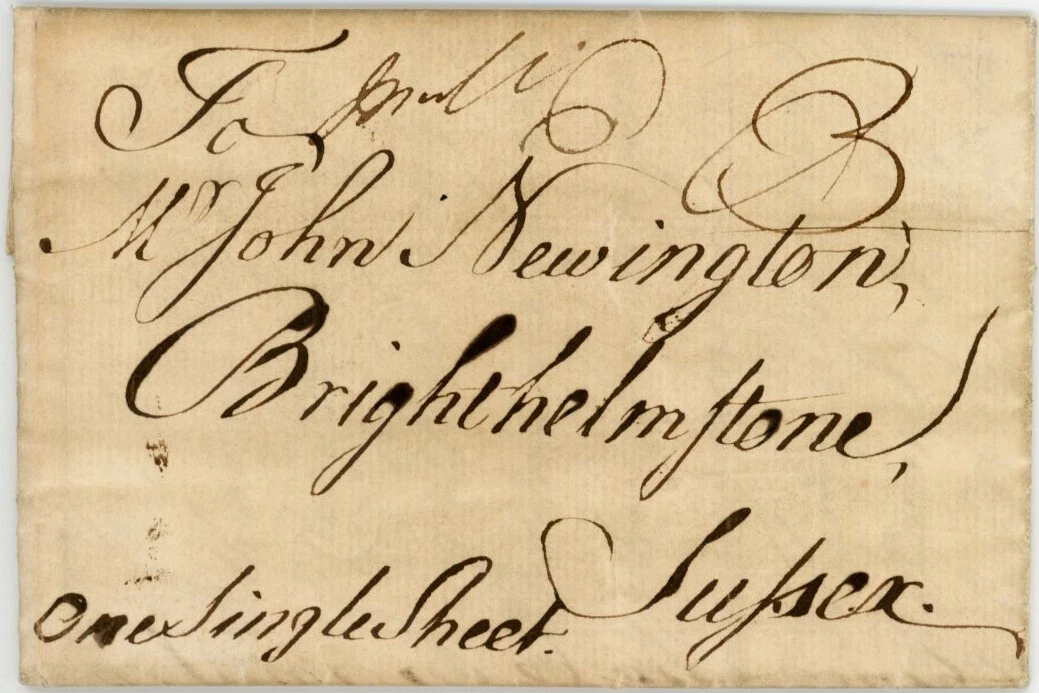 To
Mr John Newington,
Brighthelmſtone,
Suſsex.
One Single Sheet.